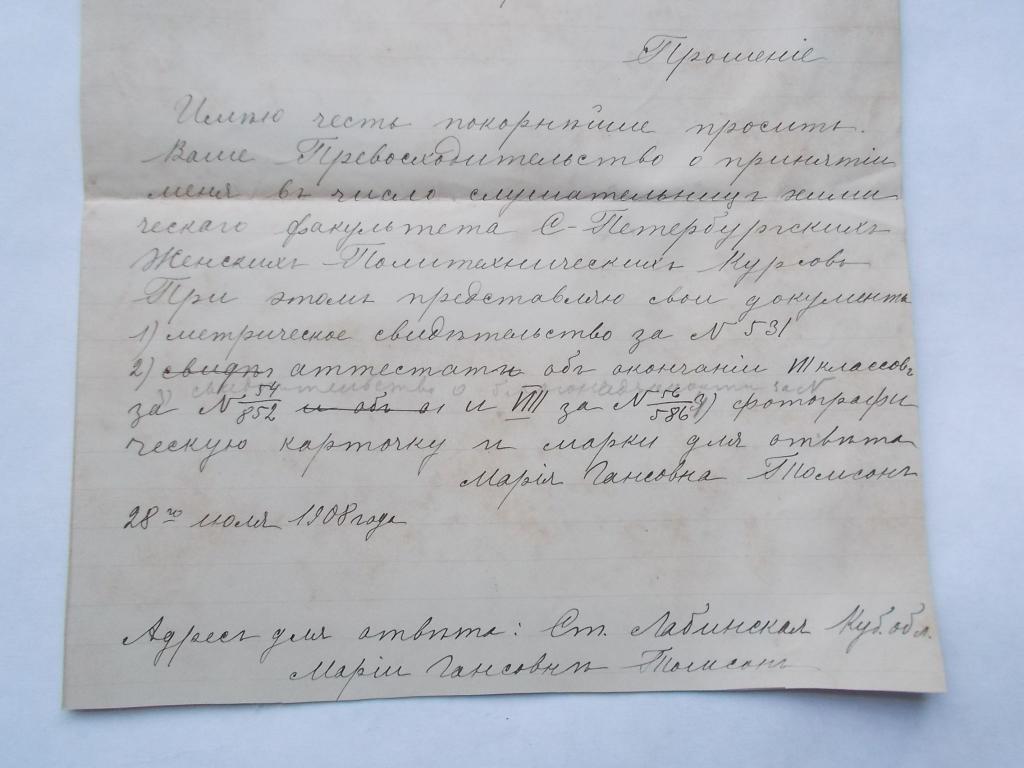 Прошеніе
Имѣю честь покорнѣйше просить
Ваше Превосходительство о принятіи
меня въ число слушательницъ хими
ческаго факультета С-Петербургскихъ
Женскихъ Политехническихъ Курсовъ
При этомъ представляю свои документы
1) метрическое свидѣтельство за N 531
2) свидѣ аттестатъ объ окончаніи VII классовъ
3) свидѣтельство о благонадежности за N
за N 54/852 и объ и VIII за N 56/586 4) фотографи
ческую карточку и марки для отвѣта
Марія Гансовна Томсонъ
28го июля 1908 года
Адресъ для отвѣта: Ст. Лабинская Куб. обл.
Маріи Гансовнѣ Томсонъ